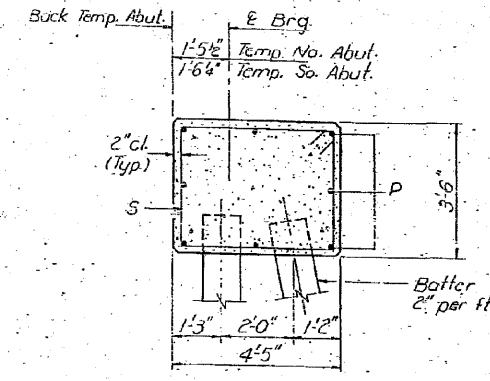 Back Temp. Abut.
℄ Brg.
1'-5½" Temp. No. Abut.
1'-6¼" Temp. So. Abut.
2"cl.
(Typ.)
P
S
3'-6"
Batter
2" per ft
1'-3" 2'-0" 1'-2"
4'-5"